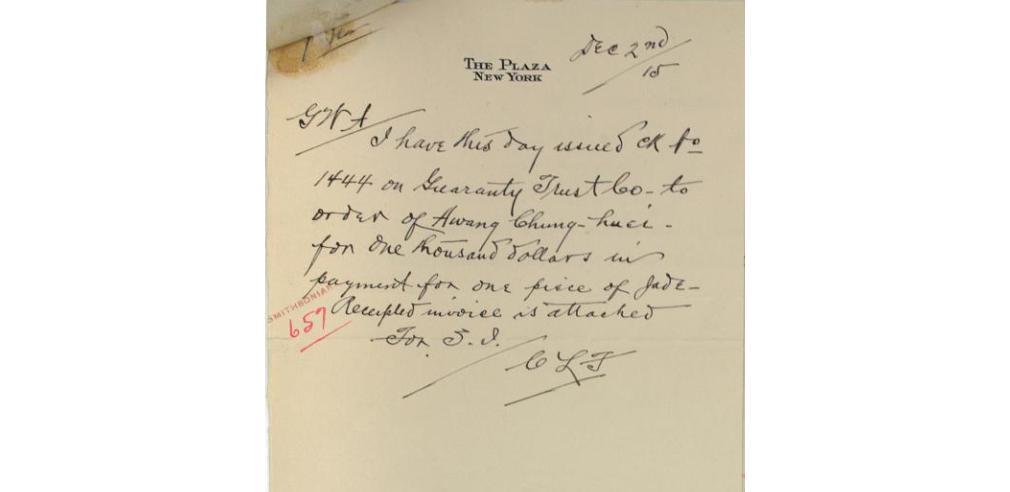 Dec 2nd
15
THE PLAZA
NEW YORK
GWA
I have this day issued ck No
1444 on Guaranty Trust Co - to
order of Hwang Chung-huei -
for One thousand dollars in
payment for one piece of Jade -
Receipted invoice is attached
For S. I.
C L F
SMITHSONIAN
657